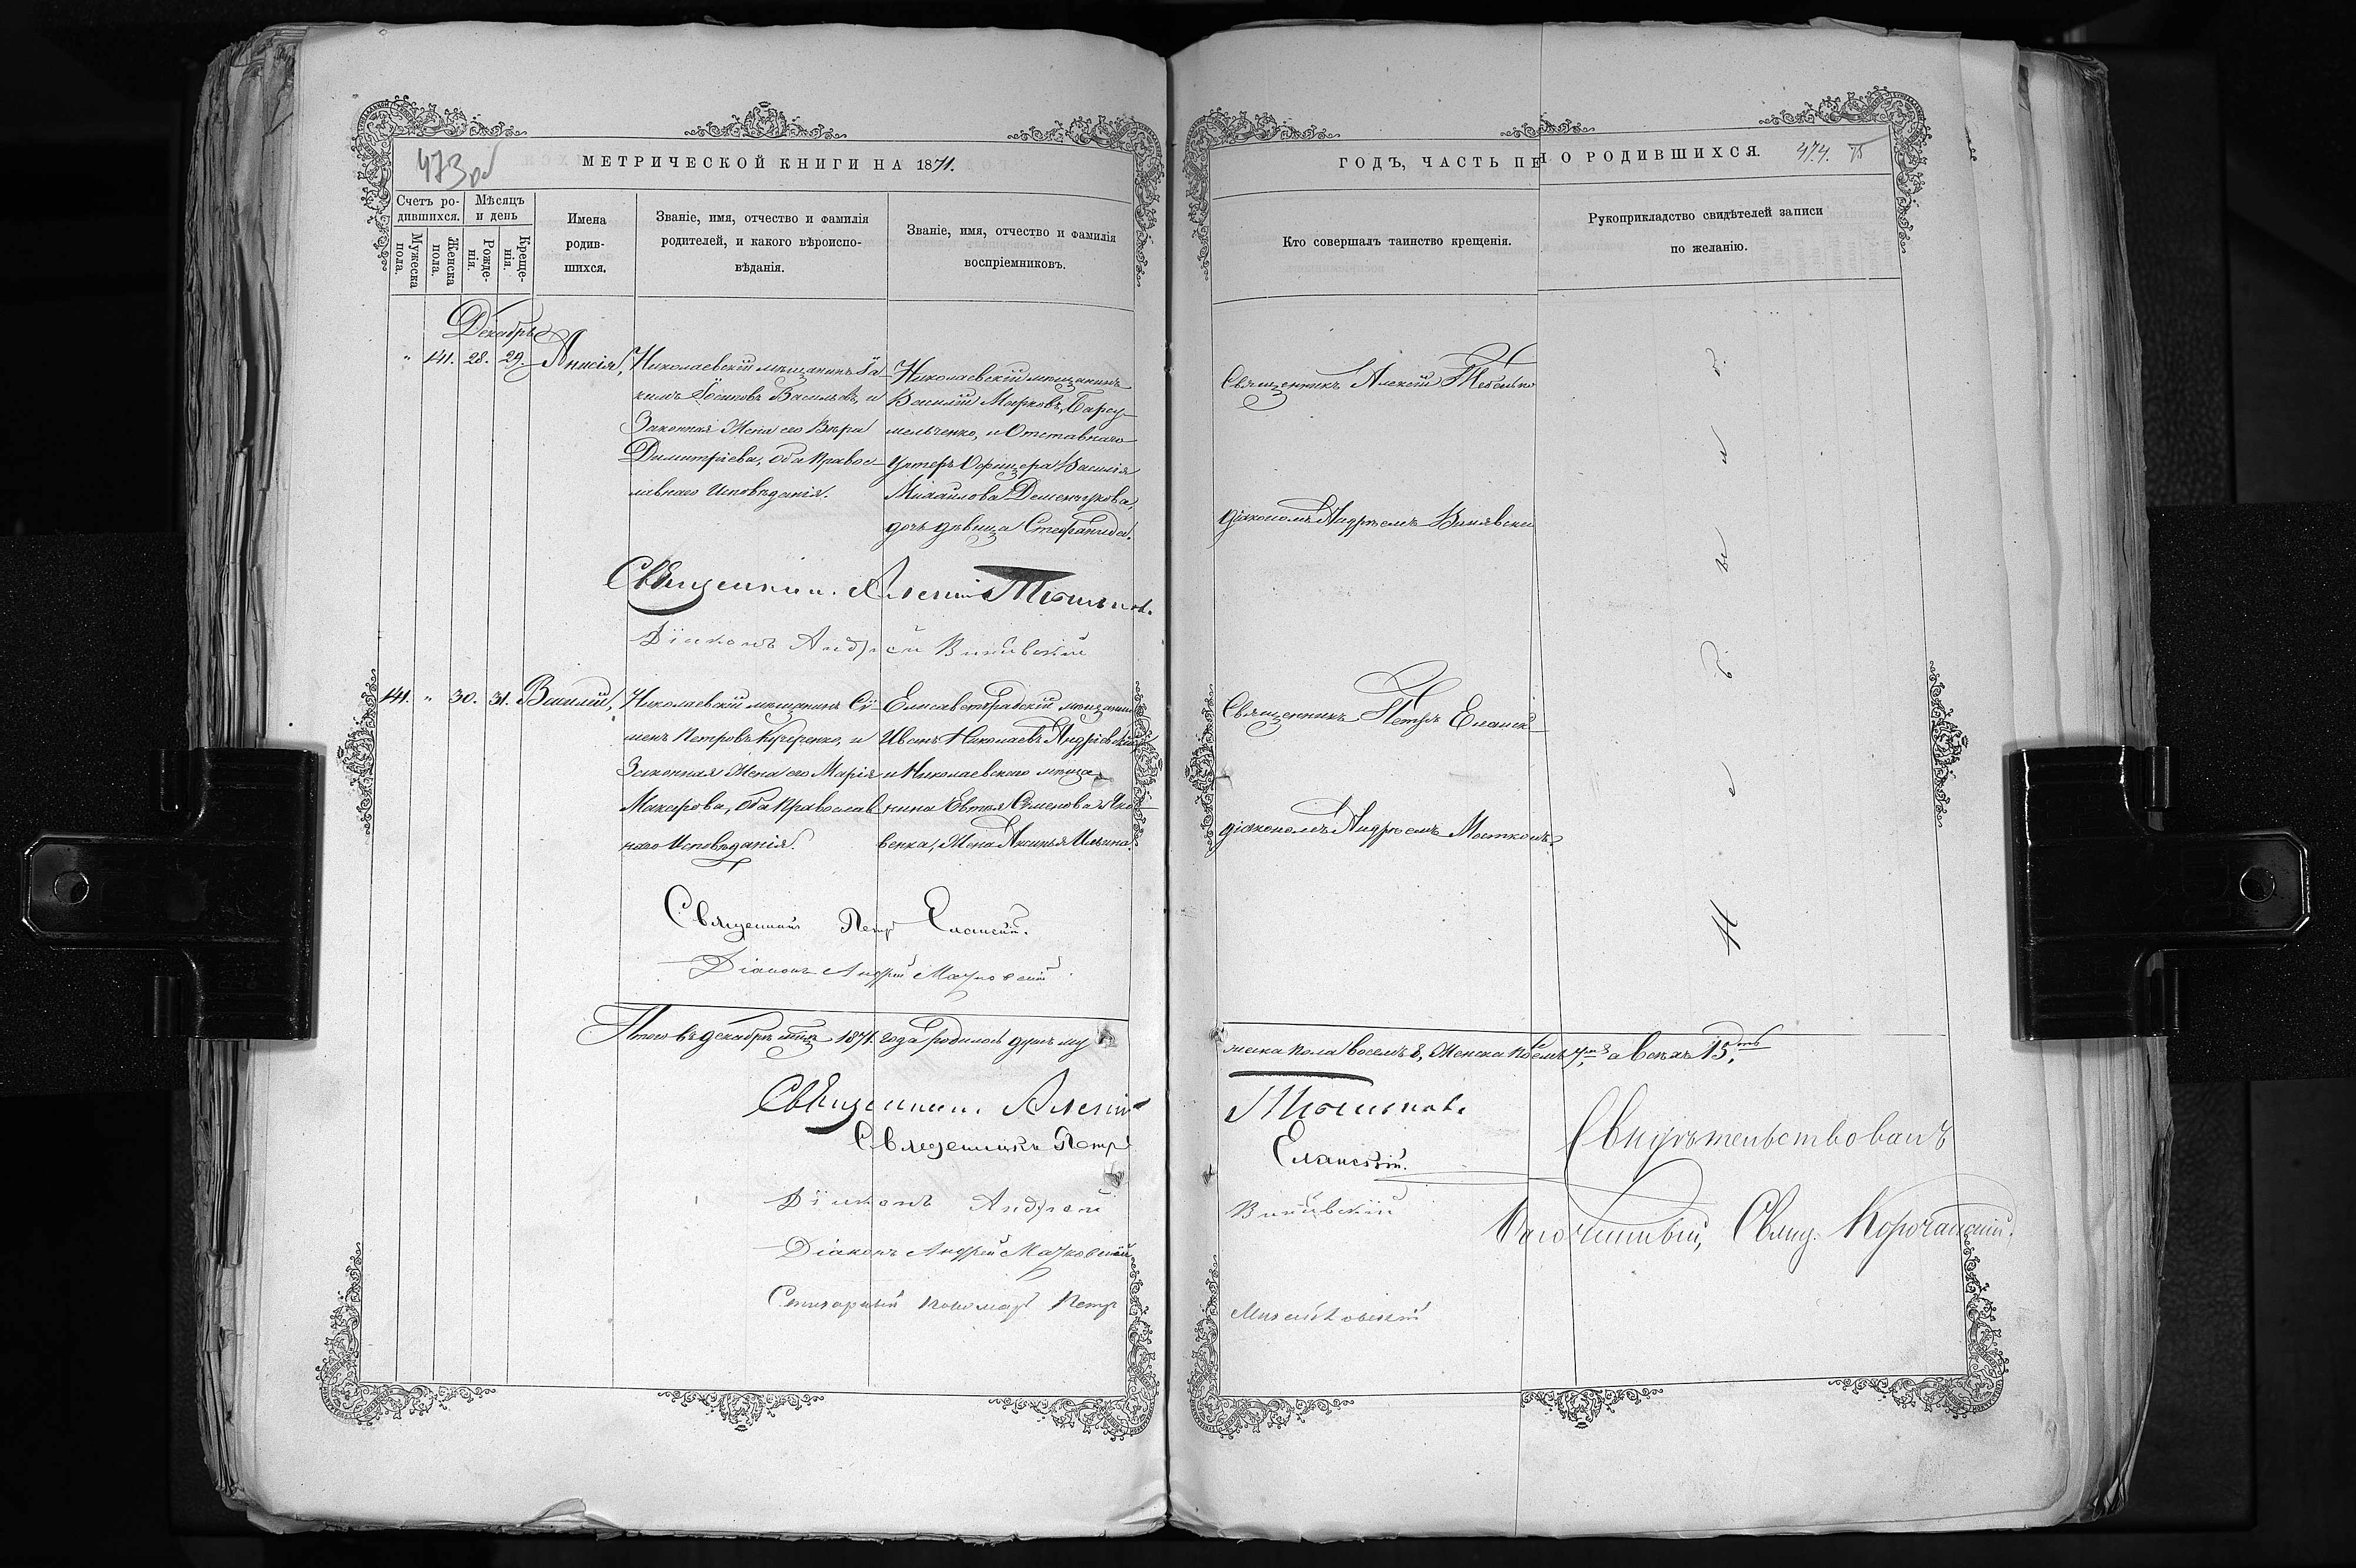 473 об
МЕТРИЧЕСКОЙ КНИГИ НА 1871.
Счетъ ро-
дившихся.
Мѣсяцъ
и день
Мужеска
пола.
Женска
пола.
Рожде-
нія.
Креще-
нія.
Имена
родив-
шихся.
Званіе, имя, отчество и фамилія
родителей, и какого вѣроиспо-
вѣданія.
Званіе, имя, отчество и фамилія
воспріемниковъ.
Декабрь
" 141. 28. 29. Анисія,
Николаевскій мѣщанинъ Іа-
кимъ Іосиповъ Васильевъ, и
Законная Жена его Вѣра
Димитріева, оба Правос-
лавнаго Исповѣданія.
Николаевскій мѣщанинъ
Василій Марковъ,
мельченко, и Отставнаго
Унтеръ Офицера Василія
Михайлова Деменчукова,
дочь дѣвица Стефанида.
Священникъ Алексій
Діаконъ Андрей
141. " 30. 31. Василій,
Николаевскій мѣщанинъ Сѵ-
меонъ Петровъ Кучеренко, и
Законная Жена его Марія
Макарова, оба Православ-
наго Исповѣданія.
Елисаветградскій мѣщанинъ
Иванъ Николаевъ Андріевскій,
и Николаевскаго мѣща-
нина Евтія Семенова Яко-
венка, Жена Аксинья Ильина.
Священникъ Петръ Еланскій.
Діаконъ Андрей Мачковскій
Итого въ декабрѣ мцѣ 1871. года родилось душъ му
Священникъ Алексій
Священникъ Петръ
Діаконъ Андрей
Діаконъ Андрей Мачковскій
Стихарный пономарь Петръ
ГОДЪ, ЧАСТЬ ПЕ О РОДИВШИХСЯ.
474. 75
Кто совершалъ таинство крещенія.
Рукоприкладство свидѣтелей записи
по желанію.
Священникъ Алексій
діакономъ Андреемъ
Священникъ Петръ Еланск
діакономъ Андреемъ
жеска пола восемь 8, Женска семь 7, а всѣхъ 15.
Еланскій.
Свидѣтельствовалъ
Благочинный, Свящ. Корчанскій.